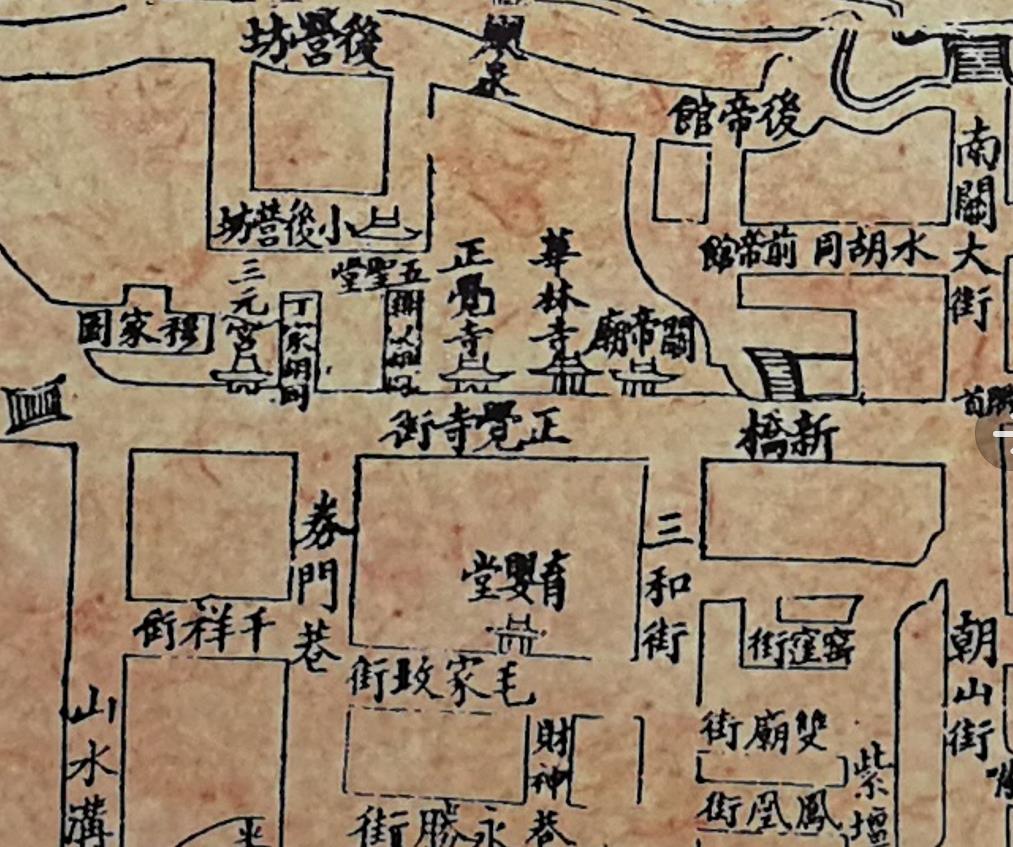 後營坊
後帝館
南關大街
小後營坊
前帝館
水胡同
五聖堂
三元宮
丁家胡同
正覺寺
華林寺
關帝廟
穆家園
正覺寺街
新橋
券門巷
三和街
育嬰堂
千祥街
毛家坟街
窰窪街
朝山街
山水溝
財神巷
雙廟街
鳳凰街
紫壇
永勝街